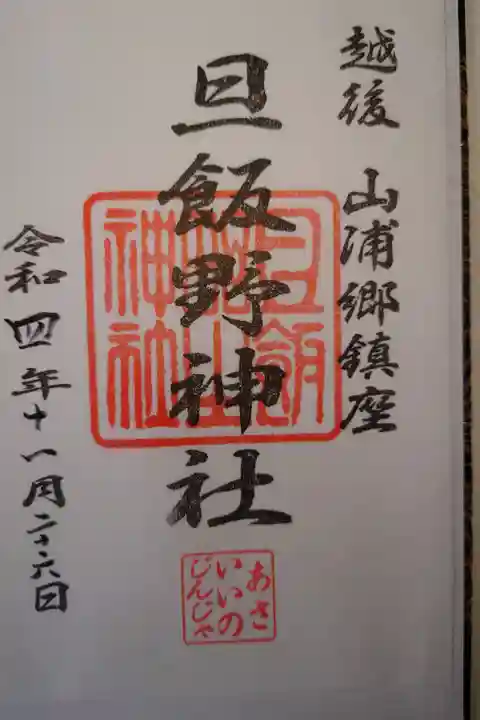 越後 山浦郷鎮座
旦飯野神社
旦飯野神社
あさ
いいの
じんじゃ
令和四年十一月二十六日